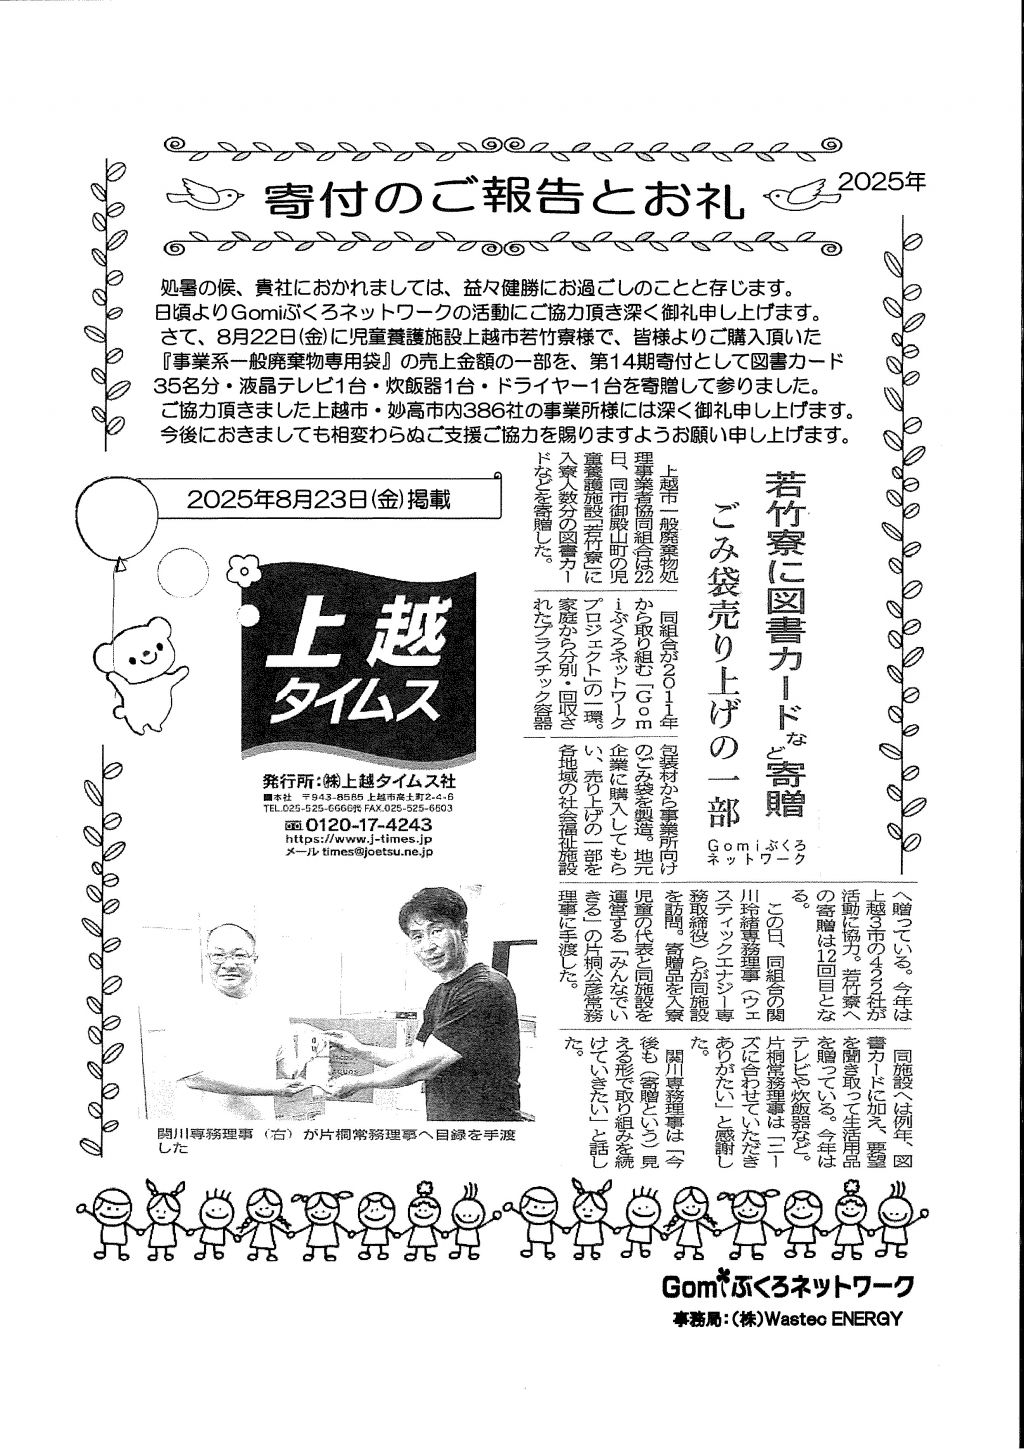 寄付のご報告とお礼
2025年
処暑の候、貴社におかれましては、益々健勝にお過ごしのことと存じます。
日頃よりGomiぶくろネットワークの活動にご協力頂き深く御礼申し上げます。
さて、8月22日(金)に児童養護施設上越市若竹寮様で、皆様よりご購入頂いた
『事業系一般廃棄物専用袋』の売上金額の一部を、第14期寄付として図書カード
35名分・液晶テレビ1台・炊飯器1台・ドライヤー1台を寄贈して参りました。
ご協力頂きました上越市・妙高市内386社の事業所様には深く御礼申し上げます。
今後におきましても相変わらぬご支援ご協力を賜りますようお願い申し上げます。
2025年8月23日(金)掲載
上越
タイムス
発行所:㈱上越タイムス社
■本社 〒943-8565 上越市高土町2-4-6
TEL.025-525-6666㈹ FAX.025-525-6603
0120-17-4243
https://www.j-times.jp
メール times@joetsu.ne.jp
若竹寮に図書カードなど寄贈
ごみ袋売り上げの一部
Gomiぶくろ
ネットワーク
上越市一般廃棄物処
理事業者協同組合は22
日、同市御殿山町の児
童養護施設「若竹寮」に
入寮人数分の図書カー
ドなどを寄贈した。
同組合が2011年
から取り組む「Gom
iぶくろネットワーク
プロジェクト」の一環。
家庭から分別・回収さ
れたプラスチック容器
包装材から事業所向け
のごみ袋を製造。地元
企業に購入してもら
い、売り上げの一部を
各地域の社会福祉施設
へ贈っている。今年は
上越3市の422社が
活動に協力。若竹寮へ
の寄贈は12回目とな
る。
この日、同組合の関
川玲緒専務理事(ウェ
スティックエナジー専
務取締役)らが同施設
を訪問。寄贈品を入寮
児童の代表と同施設を
運営する「みんなでい
きる」の片桐公彦常務
理事に手渡した。
同施設へは例年、図
書カードに加え、要望
を聞き取って生活用品
を贈っている。今年は
テレビや炊飯器など。
片桐常務理事は「ニー
ズに合わせていただき
ありがたい」と感謝し
た。
関川専務理事は「今
後も(寄贈という)見
える形で取り組みを続
けていきたい」と話し
た。
関川専務理事(右)が片桐常務理事へ目録を手渡
した
Gomiぶくろネットワーク
事務局:(株)Wastec ENERGY